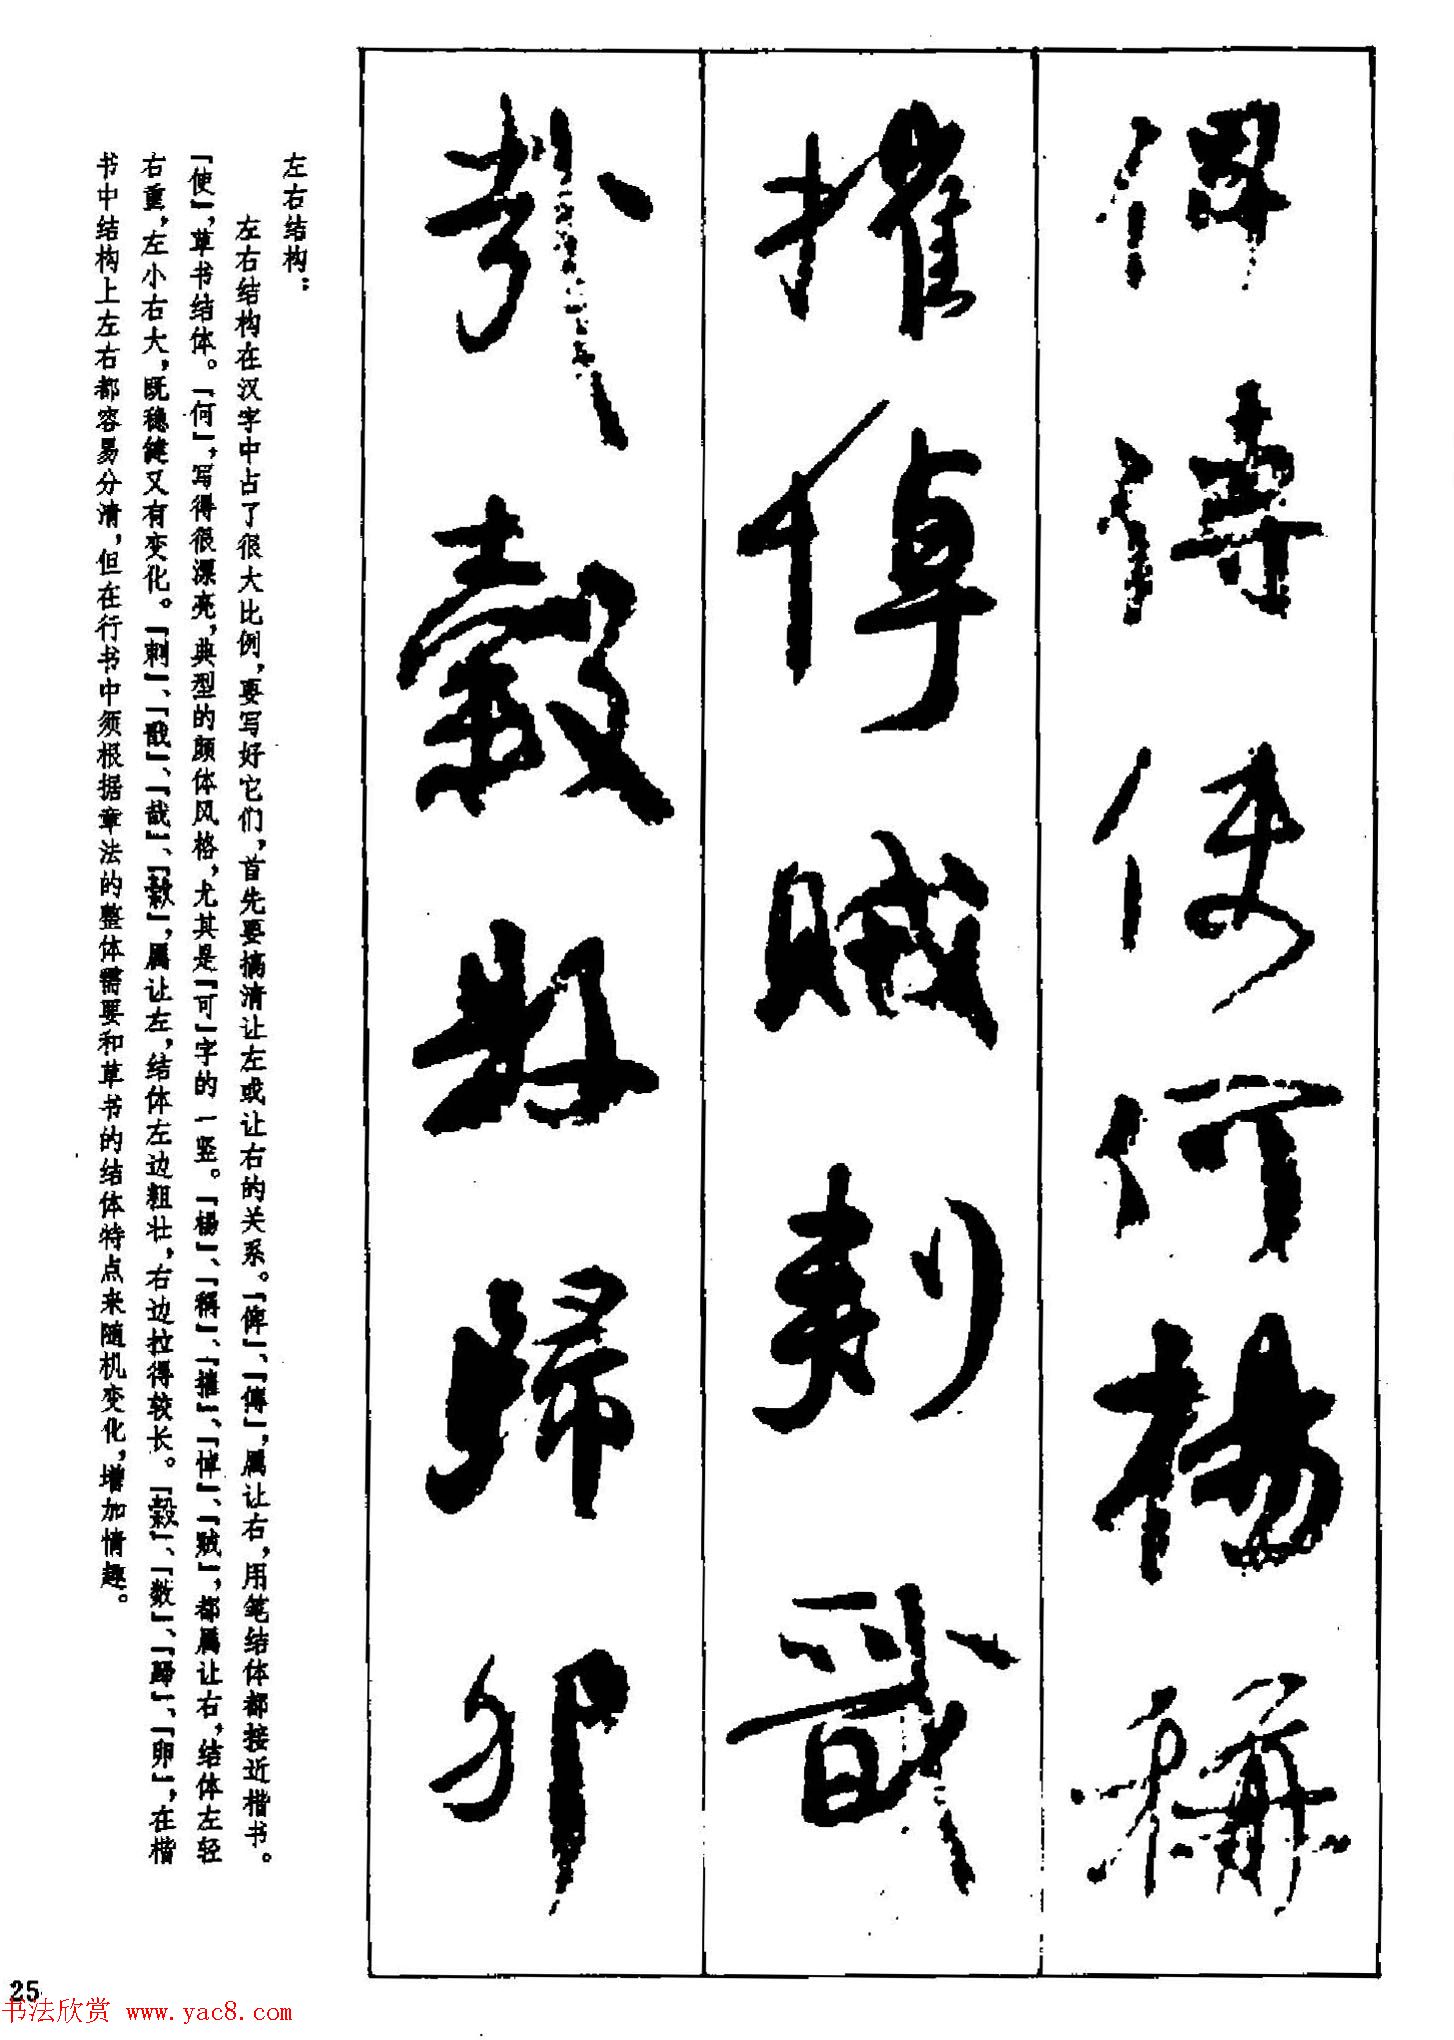 俾傳使何楊稱
摧悼賊刺戩
哉穀數歸卯
左右结构：
左右结构在汉字中占了很大比例，要写好它们，首先要搞清让左或让右的关系。「俾」、「傳」，属让右，用笔结体都接近楷书。
「使」，草书结体。「何」，写得很漂亮，典型的颜体风格，尤其是「可」字的一竖。「楊」、「稱」、「摧」、「悼」、「贼」，都属让右，结体左轻
右重，左小右大，既稳健又有变化。「刺」、「戩」、「哉」、「穀」，属让左，结体左边粗壮，右边拉得较长。「穀」、「数」、「歸」、「卯」，在楷
书中结构上左右都容易分清，但在行书中须根据章法的整体需要和草书的结体特点来随机变化，增加情趣。
25
书法欣赏 www.yac8.com